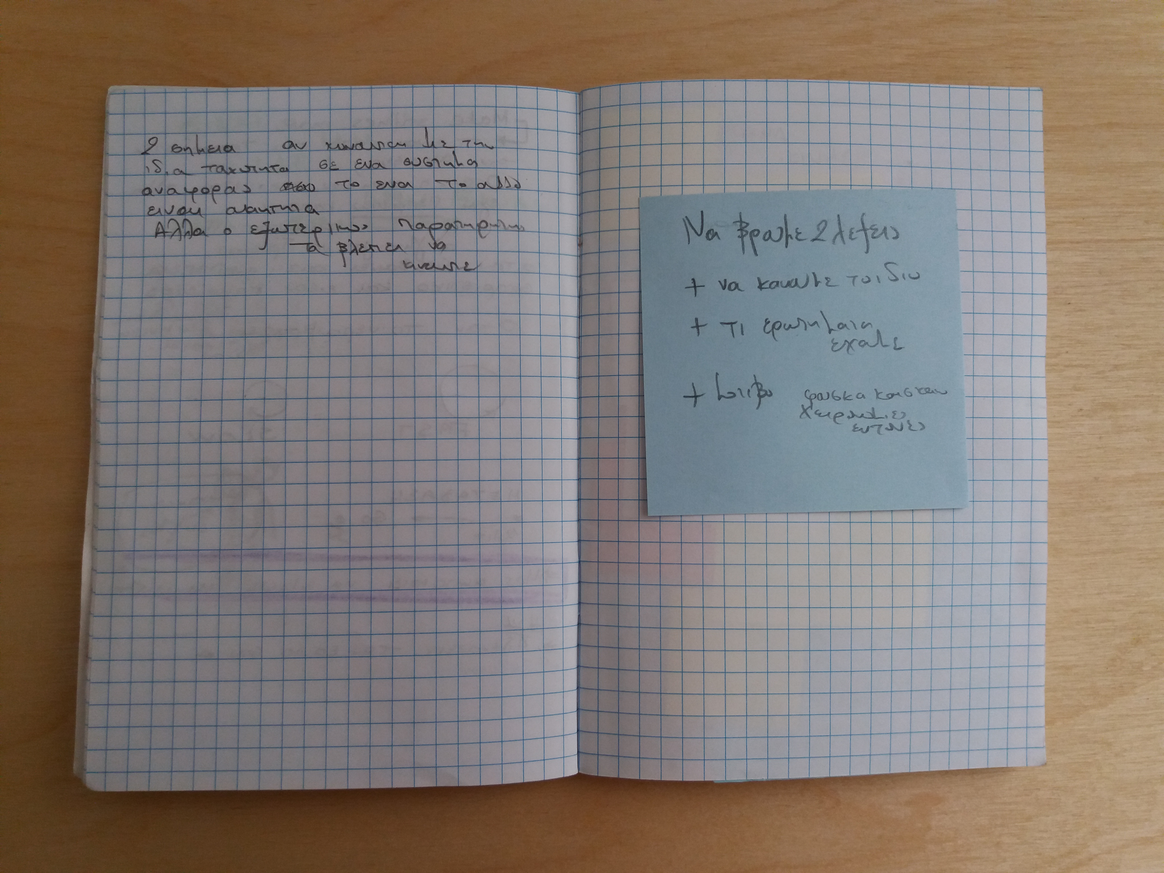 2 σημεια αν κινουνται με την
ιδια ταχυτητα σε ενα συστημα
αναφορας το ενα το αλλο
ειναι ακινητα
Αλλα ο εξωτερικος παρατηρητης
τα βλεπει να
κινουνται
Να βρουμε 2 λεξεις
+ να κανουμε το ιδιο
+ τι ερωτηματα
εχουμε
+ φουσκα και σκαι
χειρονομιες